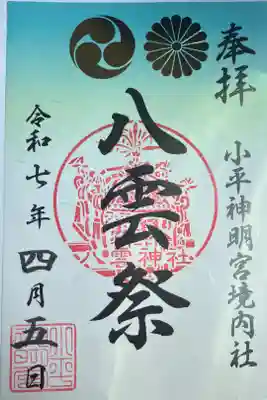 奉拝
小平神明宮境内社
八雲祭
八雲神社
令和七年四月五日